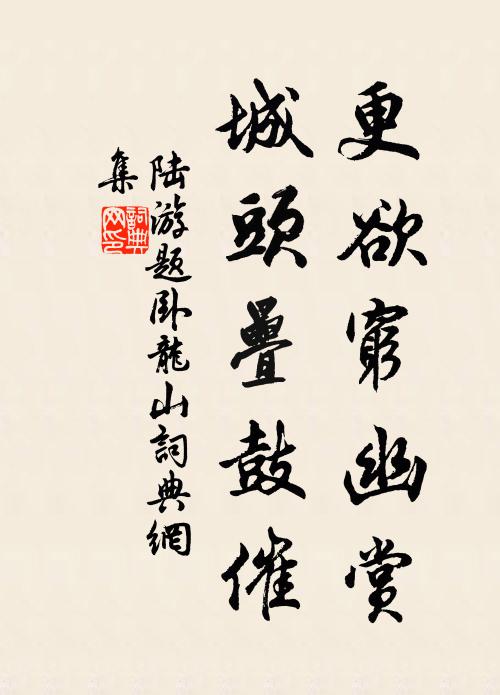 更欲窮幽賞
城頭疊鼓催
陸游題卧龍山詞典網
集
詞典
网印